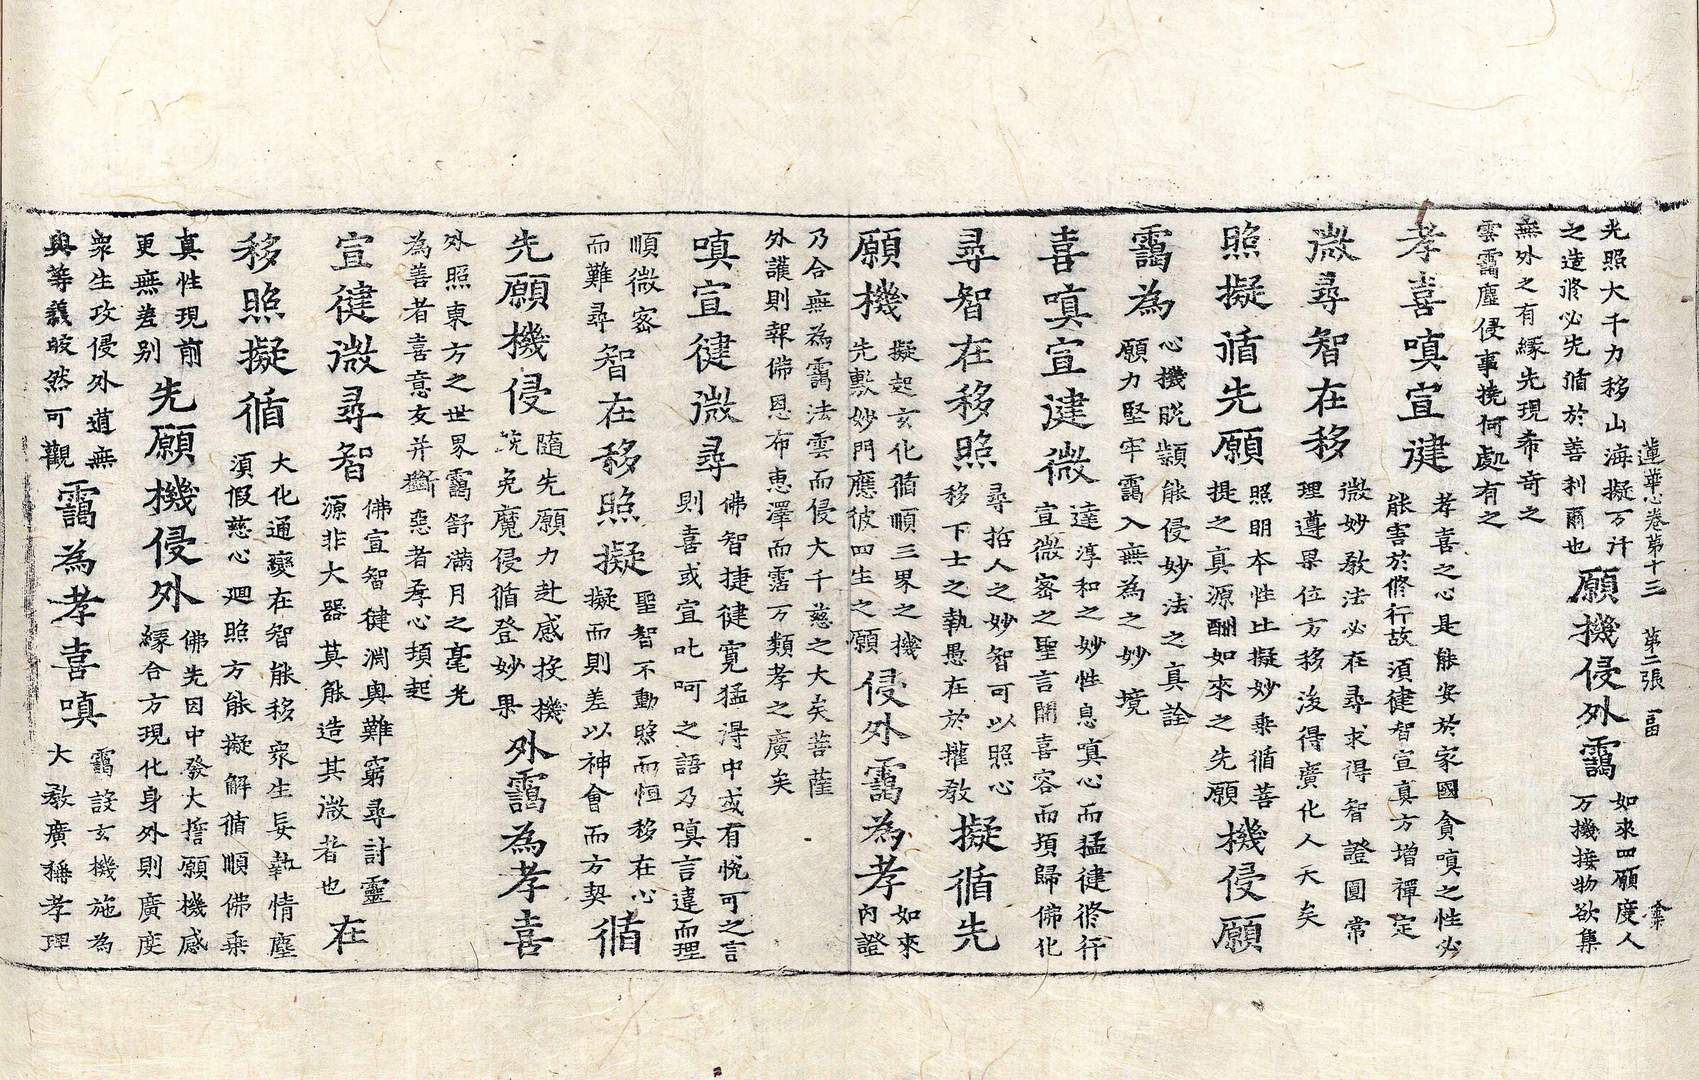 蓮華心卷第十三 第二張
光照大千力移山海擬万汁
之造修必先循於善利爾也
願機侵外靄
如來四願度人
万機接物欲集
無外之有緣先現希奇之
雲靄塵侵事撓何處有之
孝喜嗔宣徤
孝喜之心是能安於家國貪嗔之性必
能害於修行故須徤智宣真方增禪定
微尋智在移
微妙教法必在尋求得智證圓常
理遵果位方移後得廣化人天矣
照擬循先願
照明本性比擬妙乘循菩
提之真源酬如來之先願
機侵願
靄為
心機脫顥能侵妙法之真詮
願力堅牢靄入無為之妙境
喜嗔宣徤微
達淳和之妙性息嗔心而猛徤修行
宣微密之聖言開喜容而頂歸佛化
尋智在移照
尋拈人之妙智可以照心
移下士之執愚在於權教
擬循先
願機
擬起玄化循順三界之機
先敷妙門應彼四生之願
侵外靄為孝
如來
內證
乃合無為靄法雲而侵大千慈之大矣菩薩
外護則報佛恩布惠澤而霑万類孝之廣矣
嗔宣徤微尋
佛智捷徤寬猛淂中或有悅可之言
則喜或宣叱呵之語乃嗔言違而理
順微密
而難尋
智在移照擬
聖智不動照而恒移在心
擬而則差以神會而方契
循
先願機侵
隨先願力赴感投機
免魔侵循登妙果
外靄為孝喜
外照東方之世界靄舒滿月之毫光
為善者喜意友并斷惡者孝心頓起
宣徤微尋智
佛宣智徤淵奥難窮尋討靈
源非大器莫能造其微者也
在
移照擬循
大化通變在智能移衆生妄執情塵
須假慈心廻照方能擬解循順佛乘
真性現前
更無差別
先願機侵外
佛先因中發大誓願機感
緣合方現化身外則廣度
衆生攻侵外道無
與等義皎然可觀
靄為孝喜嗔
靄設玄機施為
大教廣搆孝理